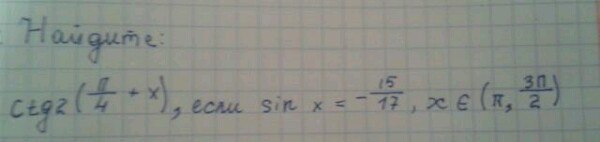 Найдите:
ctg2(π/4 + x), если sin x = -15/17, x ∈ (π, 3π/2)